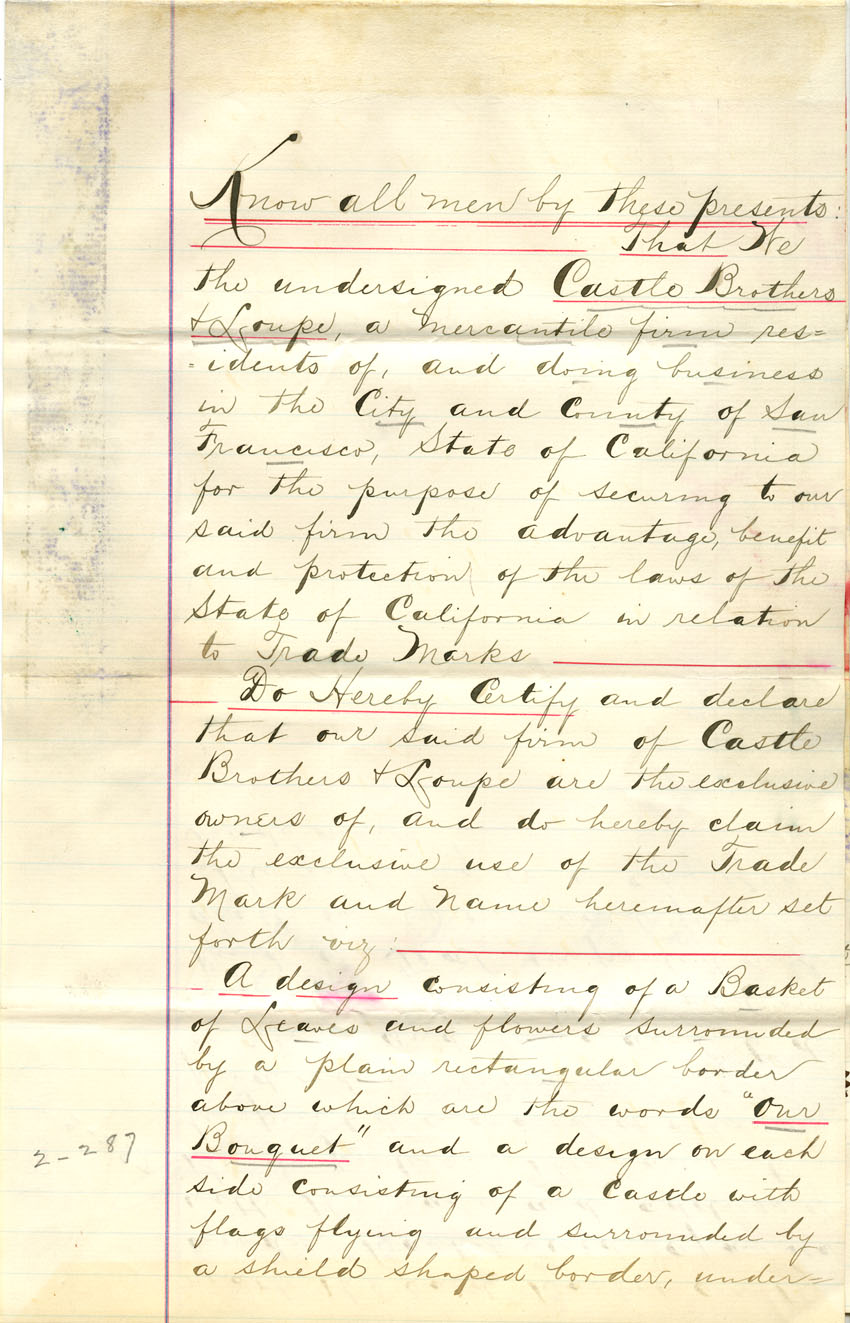 Know all men by these presents:
That We
the undersigned Castle Brothers
& Loupe, a mercantile firm res=
=idents of, and doing business
in the City and County of San
Francisco, State of California
for the purpose of securing to our
said firm the advantage, benefit
and protection of the laws of the
State of California in relation
to Trade Marks
Do Hereby Certify and declare
that our said firm of Castle
Brothers & Loupe are the exclusive
owners of, and do hereby claim
the exclusive use of the Trade
Mark and Name hereinafter set
forth viz:
A design consisting of a Basket
of Leaves and flowers surrounded
by a plain rectangular border
above which are the words "Our
Bouquet" and a design on each
2-287
side consisting of a Castle with
flags flying and surrounded by
a shield shaped border, under=